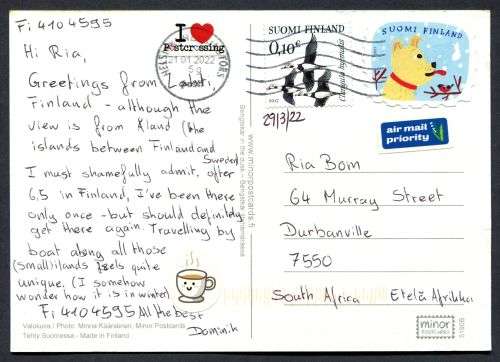 Fi 4104595
Hi Ria,
Greetings from Lahti,
Finland - although the
view is from Åland (the
islands between Finland and
Sweden)
I must shamefully admit, after
6,5 in Finland, I've been there
only once - but should definitely
get there again. Travelling by
boat along all those
(small) islands feels quite
unique. (I somehow
wonder how it is in winter)
Fi 4104595 All the best
Dominik
Valokuva / Photo: Minna Kääriäinen, Minor Postcards
Tehty Suomessa - Made in Finland
I ❤
Postcrossing
21.01.2022
www.minorpostcards.fi
SUOMI FINLAND
0,10€
SUOMI FINLAND
29/3/22
air mail
priority
Ria Bom
64 Murray Street
Durbanville
7550
South Africa Etelä Afrikka
minor